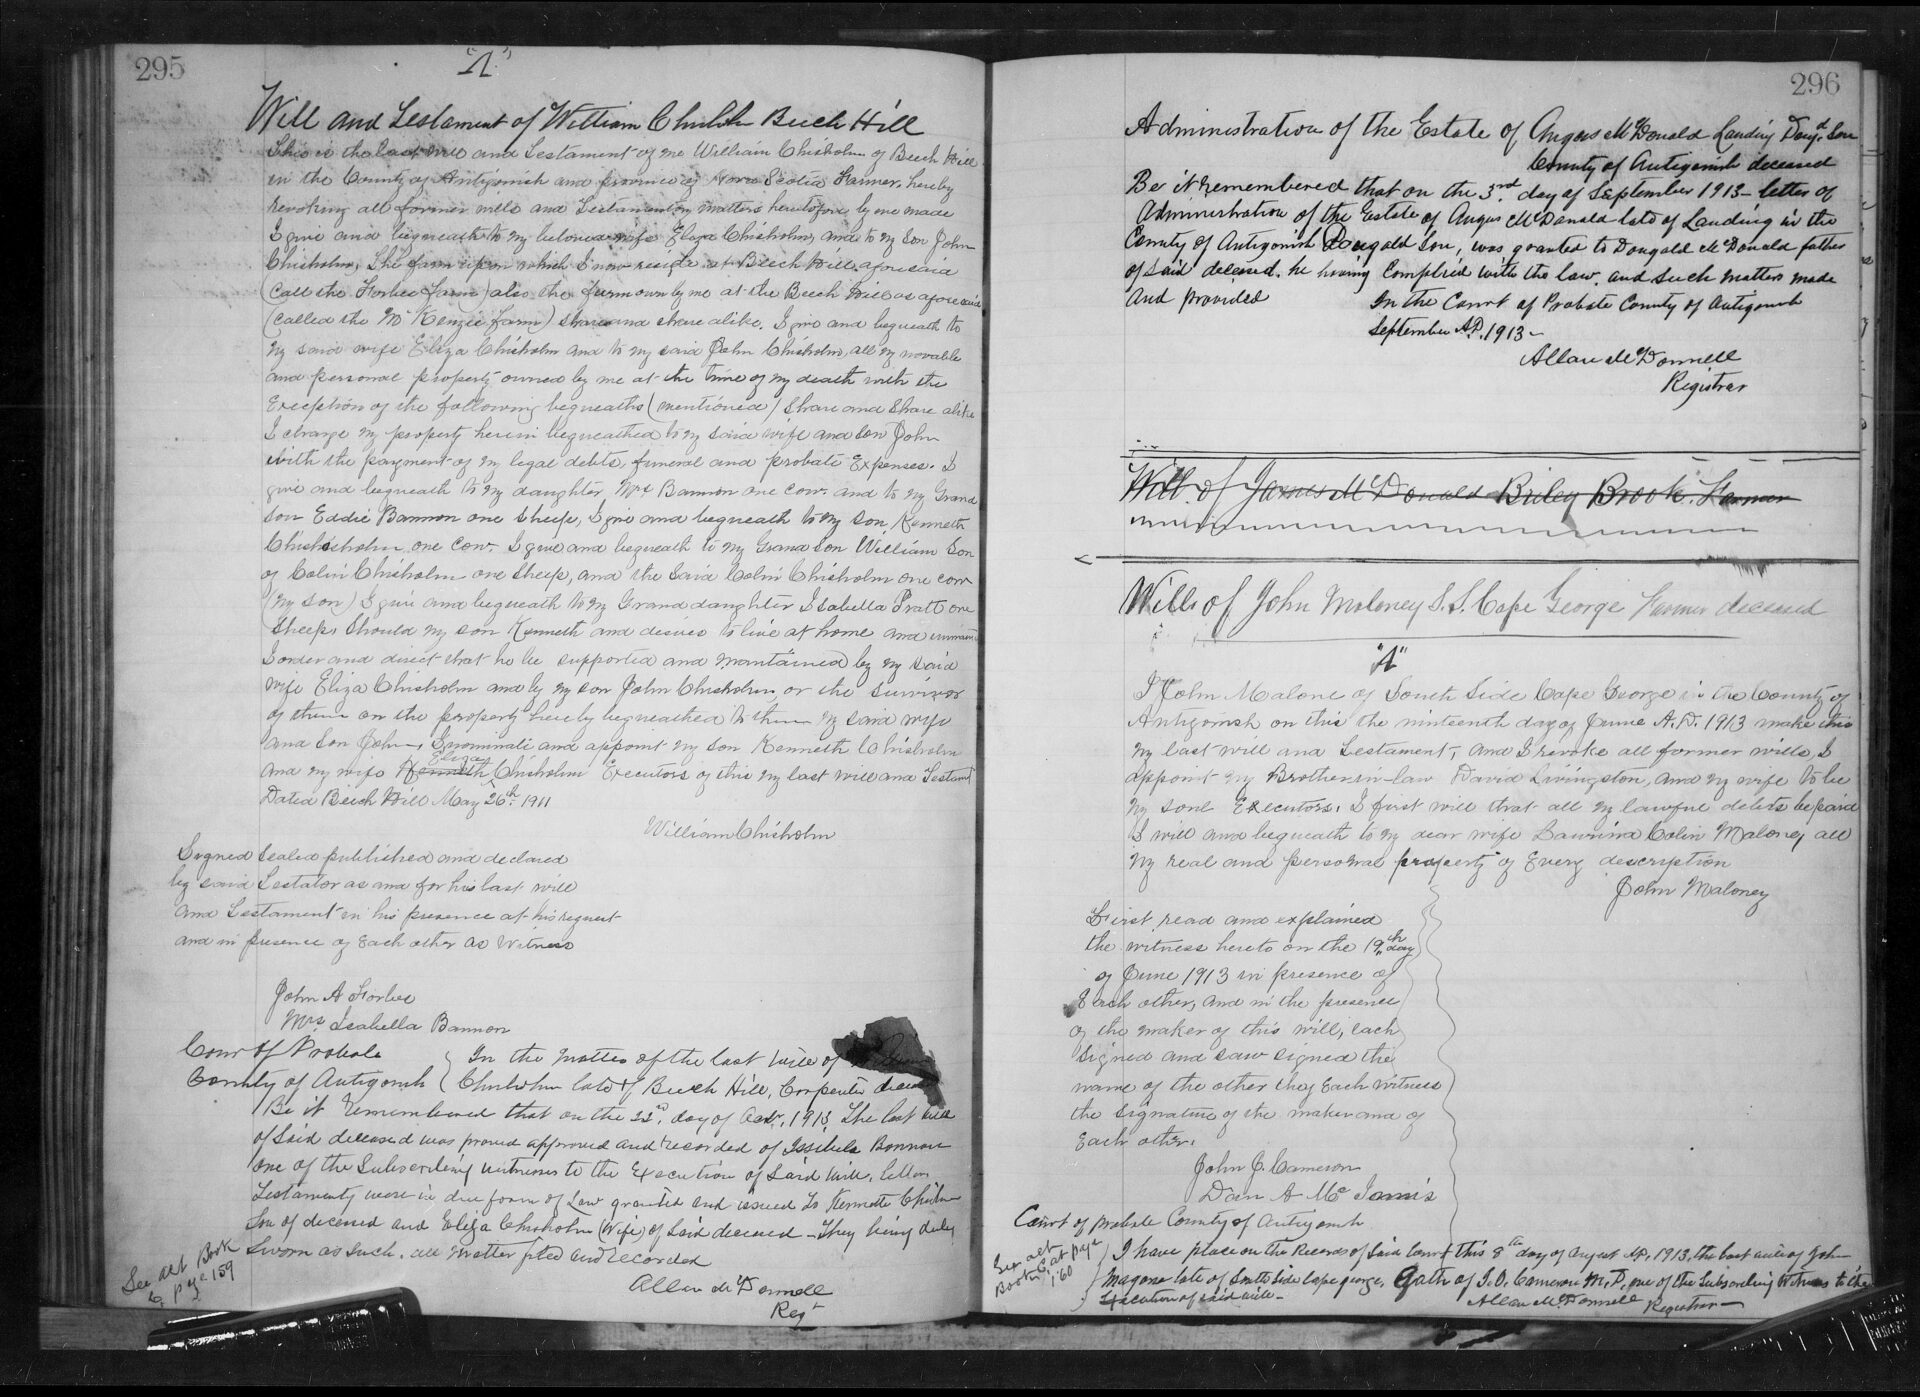 295
"A"
Will and Testament of William Chisholm Beech Hill
This is the last will and Testament of me William Chisholm of Beech Hill
in the County of Antigonish and province of Nova Scotia Farmer, hereby
revoking all former wills and Testamentary matters heretofore by me made
I give and bequeath to my beloved wife Eliza Chisholm, and to my son John
Chisholm, The farm upon which I now reside at Beech Hill aforesaid
(Call the Forbes farm) also the farm own by me at the Beech Hill as aforesaid
(Called the McKenzie farm) share and share alike. I give and bequeath to
my said wife Eliza Chisholm and to my said John Chisholm, all my movable
and personal property owned by me at the time of my death with the
Exception of the following bequeaths (mentioned) Share and Share alike
I charge my property herein bequeathed to my said wife and son John
with the payment of my legal debts, funeral and probate Expenses. I
give and bequeath to my daughter, Mrs Bannon one cow and to my Grand
son Eddie Bannon one sheep, I give and bequeath to my son Kenneth
Chisholm one cow. I give and bequeath to my Grand son William Son
of Colin Chisholm one sheep, and the said Colin Chisholm one cow
(my son) I give and bequeath to my Grand daughter Isabella Pratt one
sheep, Should my son Kenneth and desires to live at home and
I order and direct that he be supported and mantained by my said
wife Eliza Chisholm and by my son John Chisholm or the survivor
of them on the property hereby bequeathed to them my said wife
and son John, I nominate and appoint my son Kenneth Chisholm
Eliza
and my wife Kenneth Chisholm Executors of this my last will and Testamt
Dated Beech Hill May 26th 1911
William Chisholm
Signed Sealed published and declared
by said Testator as and for his last will
and Testament in his presence at his request
and in presence of Each other as Witness
John A Forbes
Mrs Isabella Bannon
Court of Probate
County of Antigonish
In the matter of the last will of
Chisholm late of Beech Hill, Carpenter
Be it Remembered that on the 22nd day of Octr. 1913, The last will
of Said deceased was proved approved and recorded of Bannon
one of the Subscribing witnesses to the Execution of Said Will, letters
Testamenty were in due form of Law granted and issued to Kenneth Chisholm
Son of deceased and Eliza Chisholm (Wife) of Said deceased - They being duly
Sworn as Such. all matter filed and recorded
Allan McDonnell
Regt
See Book
page 159
296
Administration of the Estate of Angus McDonald Landing Dougd Son
County of Antigonish deceased
Be it remembered that on the 3rd. day of September 1913 - letter of
Administration of the Estate of Angus McDonald late of Landing in the
County of Antigonish Dougald Son, was granted to Dougald McDonald father
of said deceased. he having Complied with the law. and such matters made
And provided
In the Court of Probate County of Antigonish
September A.D. 1913 -
Allan McDonnell
Registrar
Will of James McDonald Briley Brook. Farmer
Will of John Maloney S.S. Cape George Farmer deceased
"A"
I John Malone of South Side Cape George in the County of
Antigonish on this the ninteenth day of June A.D. 1913 make this
my last will and Testament, and I revoke all former wills, I
appoint my Brother-in-law David Livingston, and my wife to be
my soul Executors. I first will that all my lawful debts be paid
I will and bequeath to my dear wife Colin Maloney all
my real and personal property of Every description
John Maloney
First read and explained
the witness hereto on the 19th day
of June 1913 in presence of
Each other, and in the presence
of the maker of this will, each
signed and saw signed the
name of the other they Each witness
the signature of the maker and of
Each other.
John J. Cameron
Dan A Mc
Court of probate County of Antigonish
Book at page
160
I have place on the Records of Said Court this 8th day of August A.D. 1913. the last will of John
late of South Side Cape george, oath of Cameron M.D, one of the Subscribing Witness to the
Execution of said Will -
Allan McDonnell Registrar